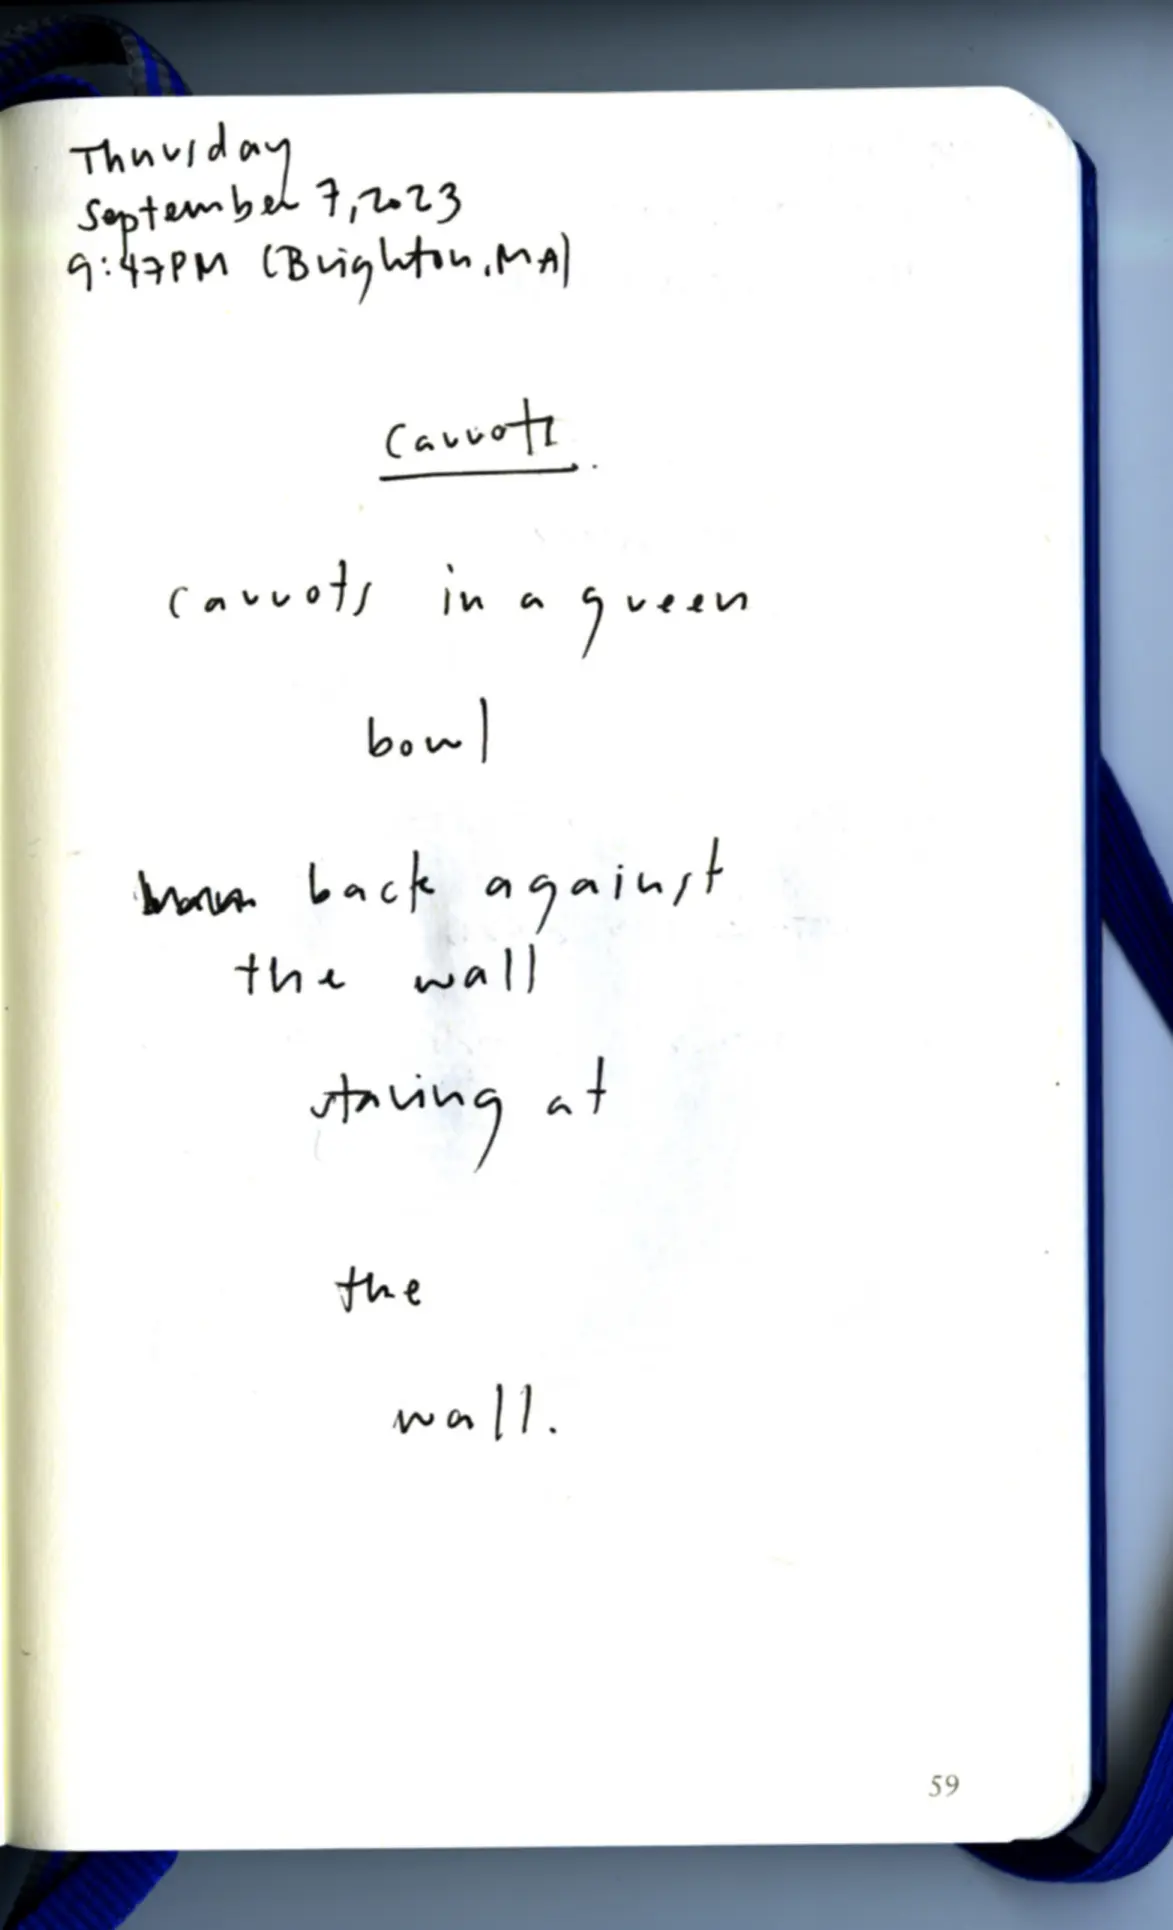 Thursday
September 7, 2023
9:47PM (Brighton, MA)
Carrots.
carrots in a green
bowl
back against
the wall
staring at
the
wall.
59